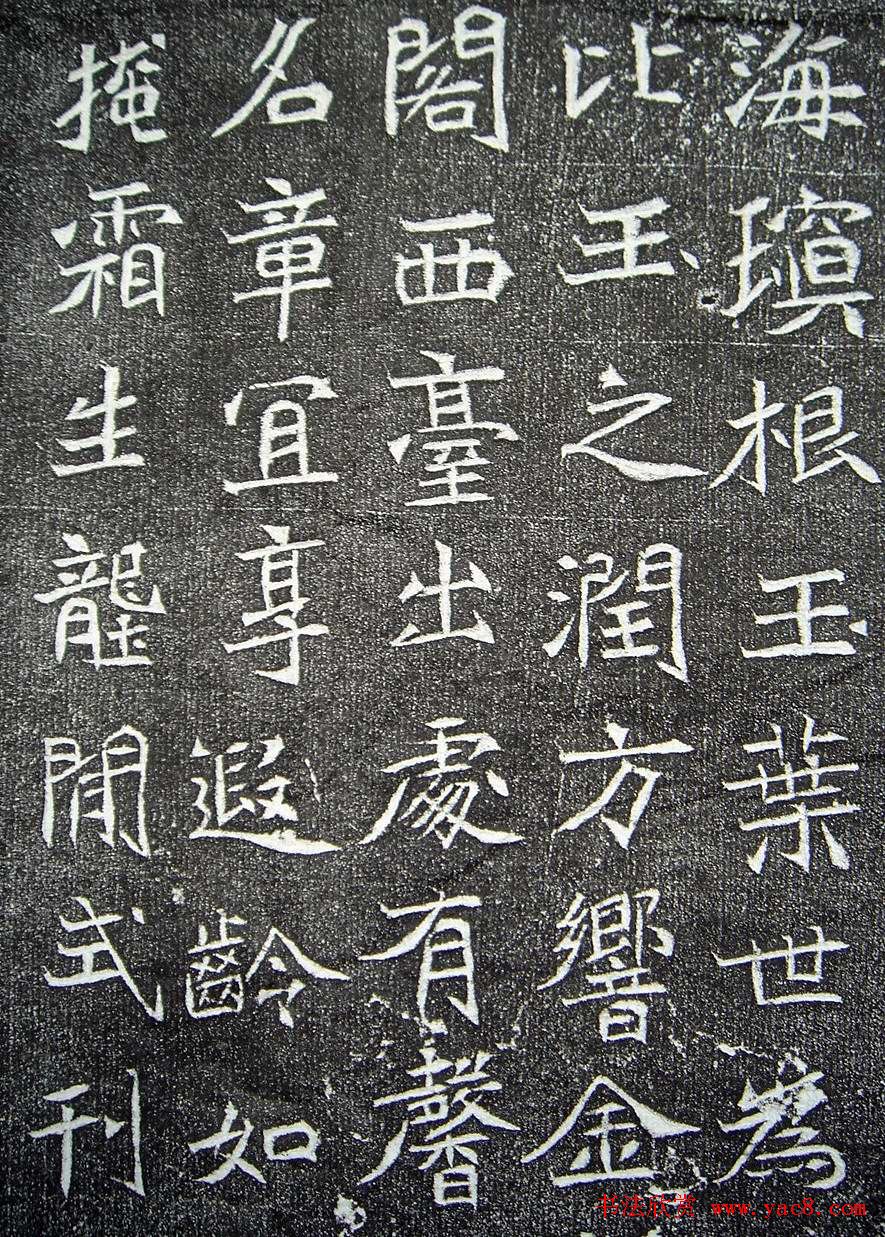 海根玉葉世為
比玉之潤方響金
閣西臺出處有馨
名章宜享遐齡如
掩霜生壟閒式刊
书法欣赏 www.yac8.com